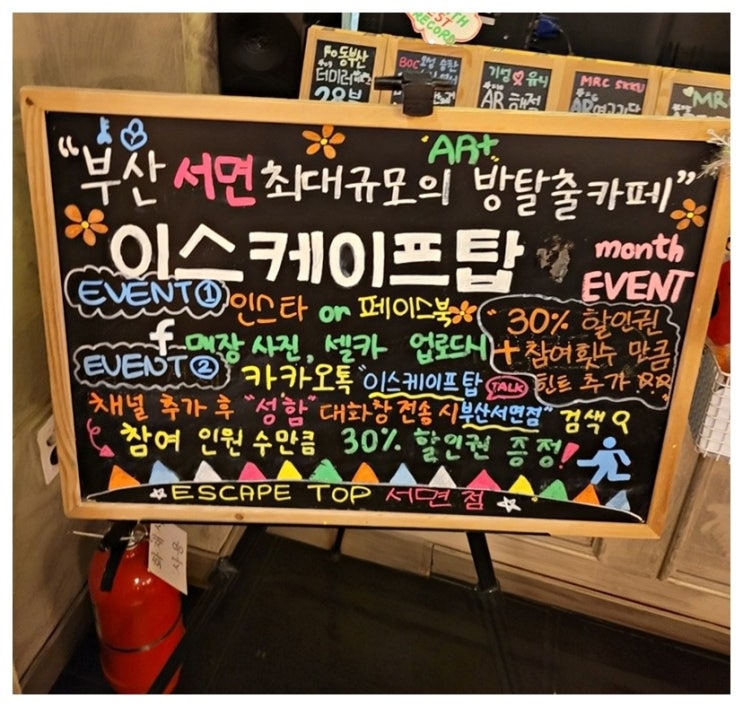 동부산
터미러
28분
BOC
기성 유식
AR 해적
MRC SKKU
MR
AR+
"부산 서면 최대규모의 방탈출카페"
이스케이프탑
month
EVENT
EVENT ① 인스타 or 페이스북
매장 사진, 셀카 업로드시
"30% 할인권
+ 참여횟수 만큼
힌트 추가
EVENT ② 카카오톡 "이스케이프탑 TALK
채널 추가 후 "성함" 대화창 전송 시 부산서면점" 검색
참여 인원 수만큼 30% 할인권 증정!
ESCAPE TOP 서면점